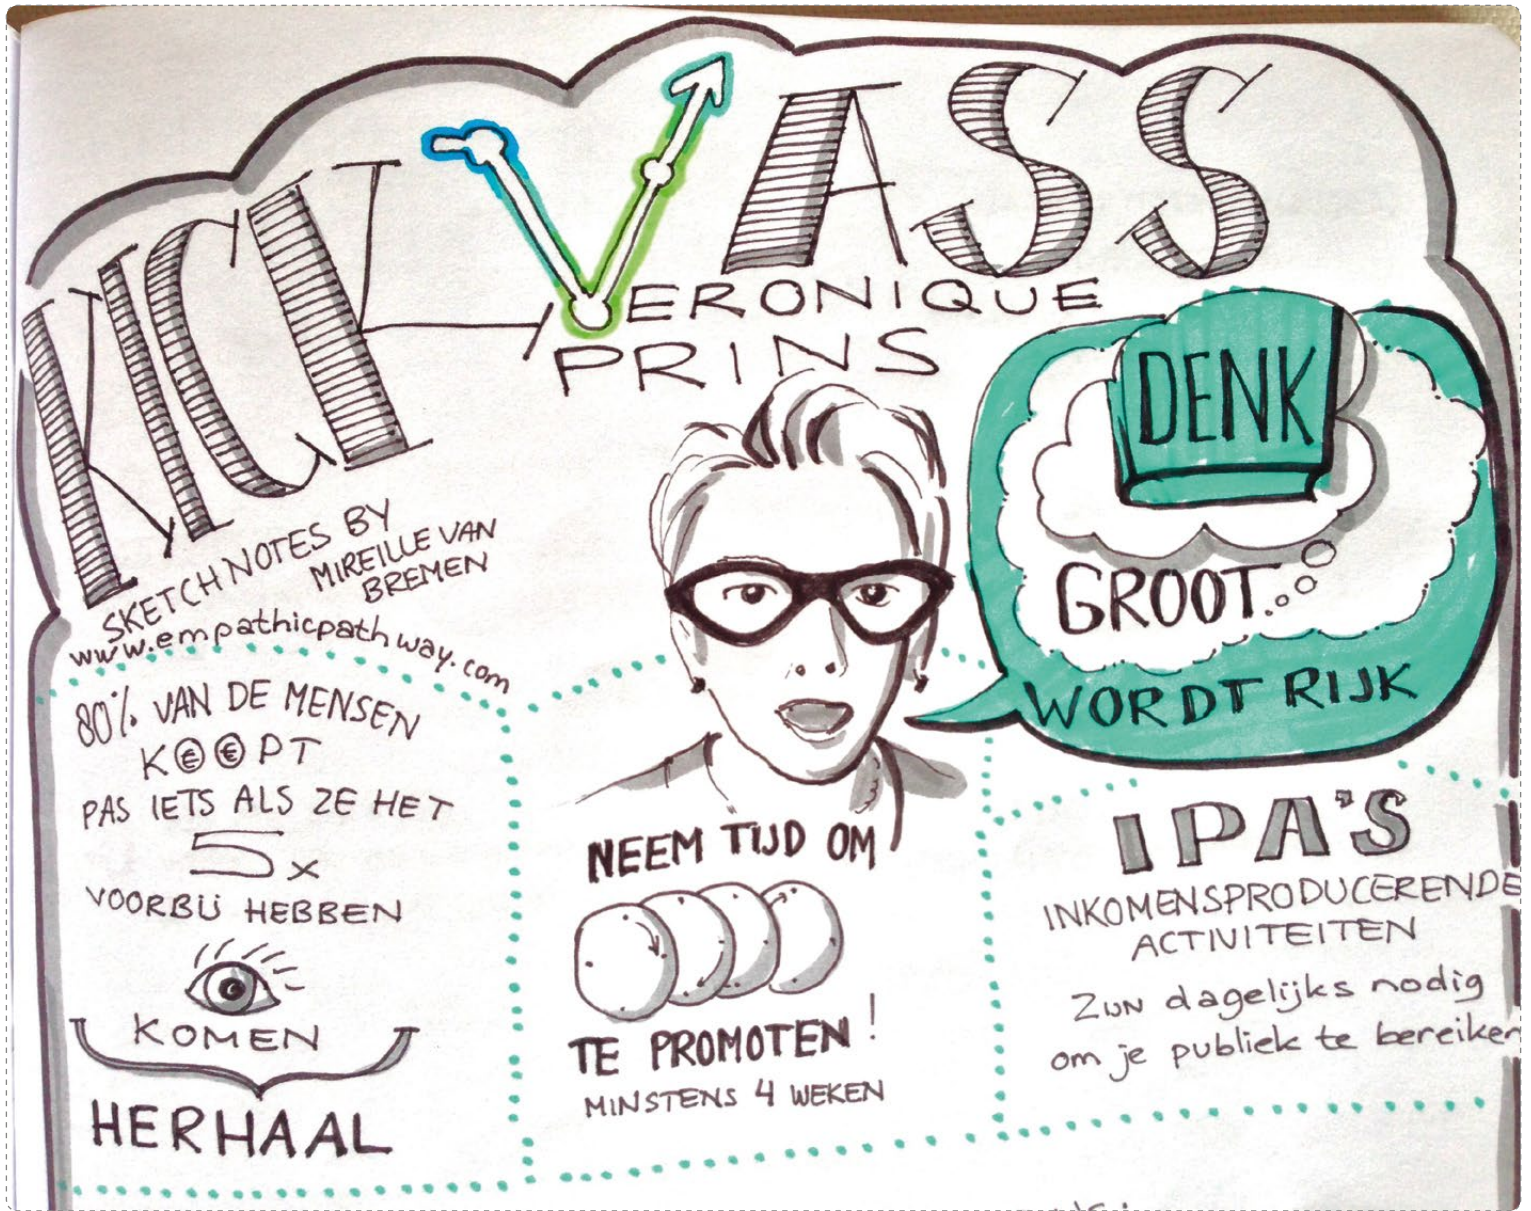 KICK ASS
VERONIQUE
PRINS
SKETCHNOTES BY
MIREILLE VAN
BREMEN
www.empathicpathway.com
DENK
GROOT...
WORDT RIJK
80% VAN DE MENSEN
K€€PT
PAS IETS ALS ZE HET
5x
VOORBIJ HEBBEN
KOMEN
HERHAAL
NEEM TIJD OM
TE PROMOTEN!
MINSTENS 4 WEKEN
IPA'S
INKOMENSPRODUCERENDE
ACTIVITEITEN
Zijn dagelijks nodig
om je publiek te bereiken